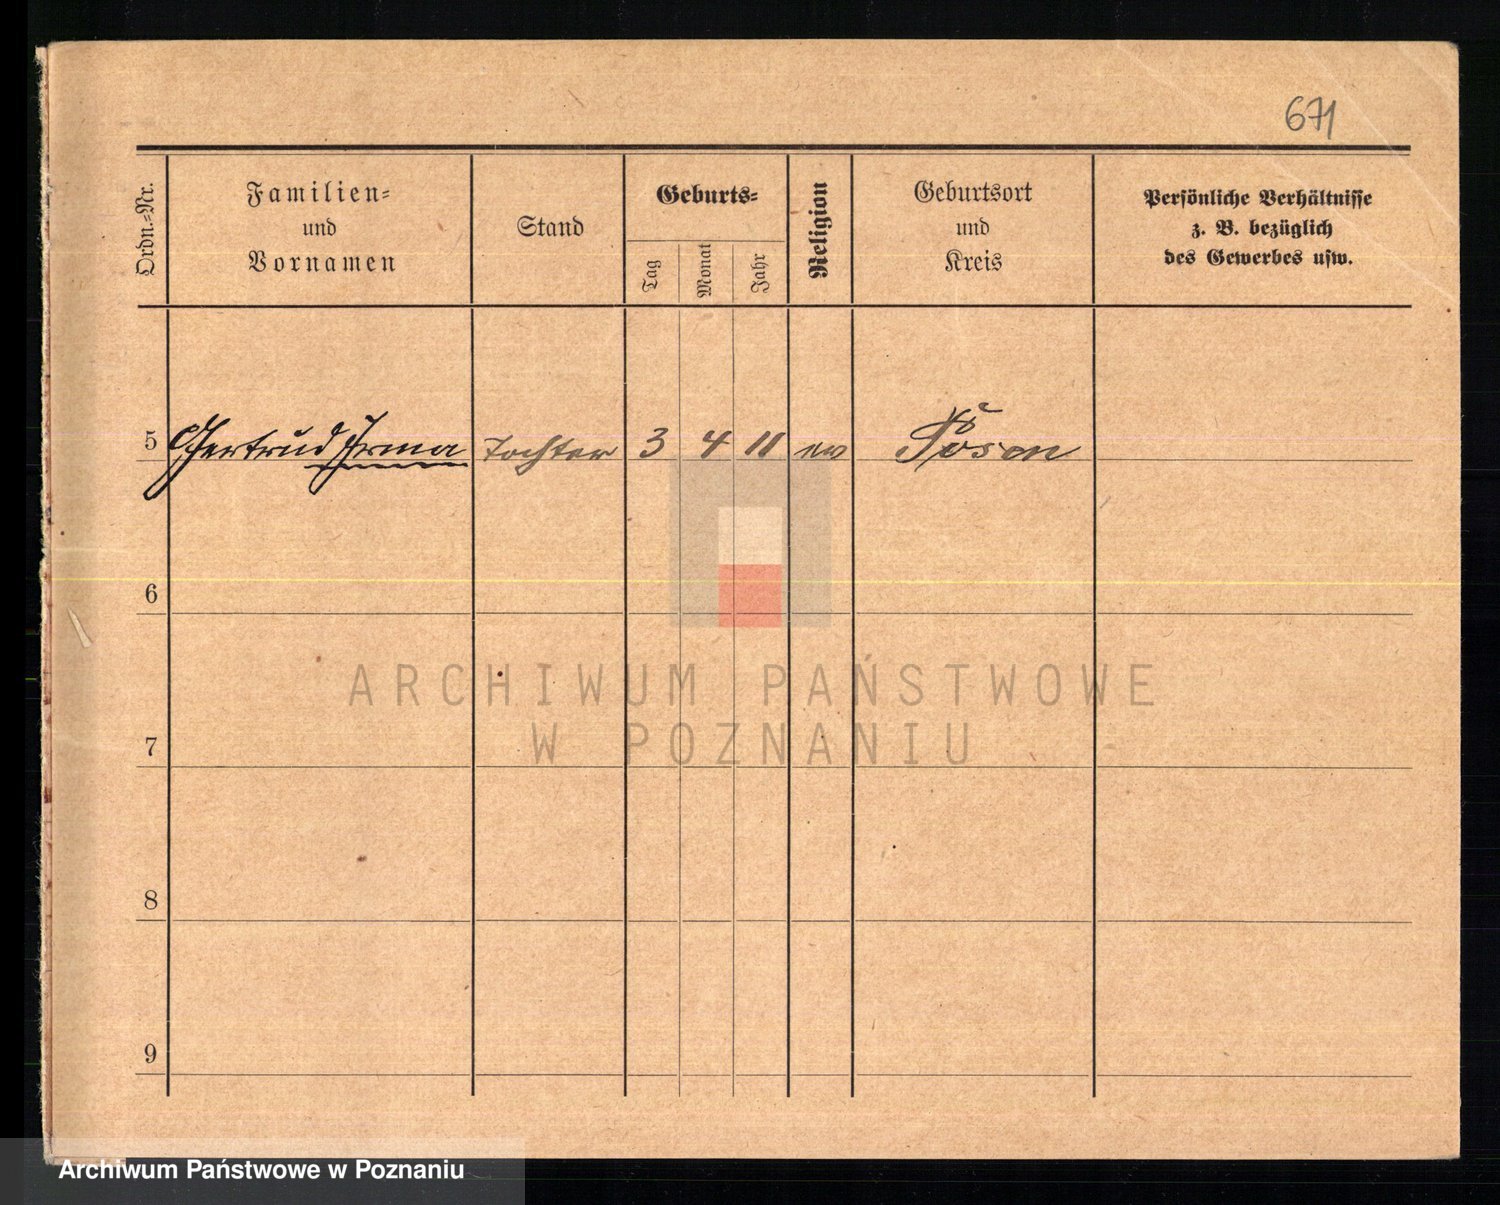 671
Ordn.-Nr.
Familien-
und
Vornamen
Stand
Geburts-
Tag
Monat
Jahr
Religion
Geburtsort
und
Kreis
Persönliche Verhältnisse
z. B. bezüglich
des Gewerbes usw.
5 Gertrud Irma Tochter 3 4 11 ev Posen
6
ARCHIWUM PAŃSTWOWE
W POZNANIU
7
8
9
Archiwum Państwowe w Poznaniu